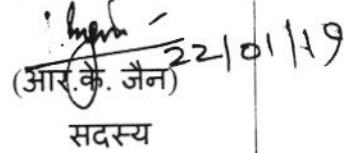 22/01/19
(आर.के. जैन)
सदस्य